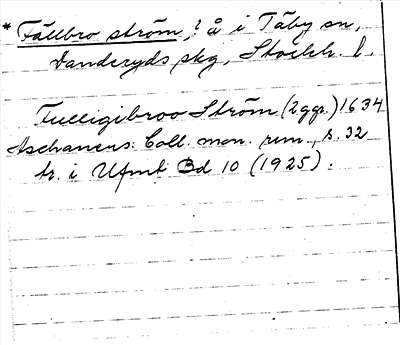 * Fällbro ström, ? å i Täby sn,
Danderyds skg, Stockh. l.
Fulligibroo Ström (2 ggr.) 1634
Aschaneus: Coll. mon. run., s. 32
tr. i Ufmt Bd 10 (1925).